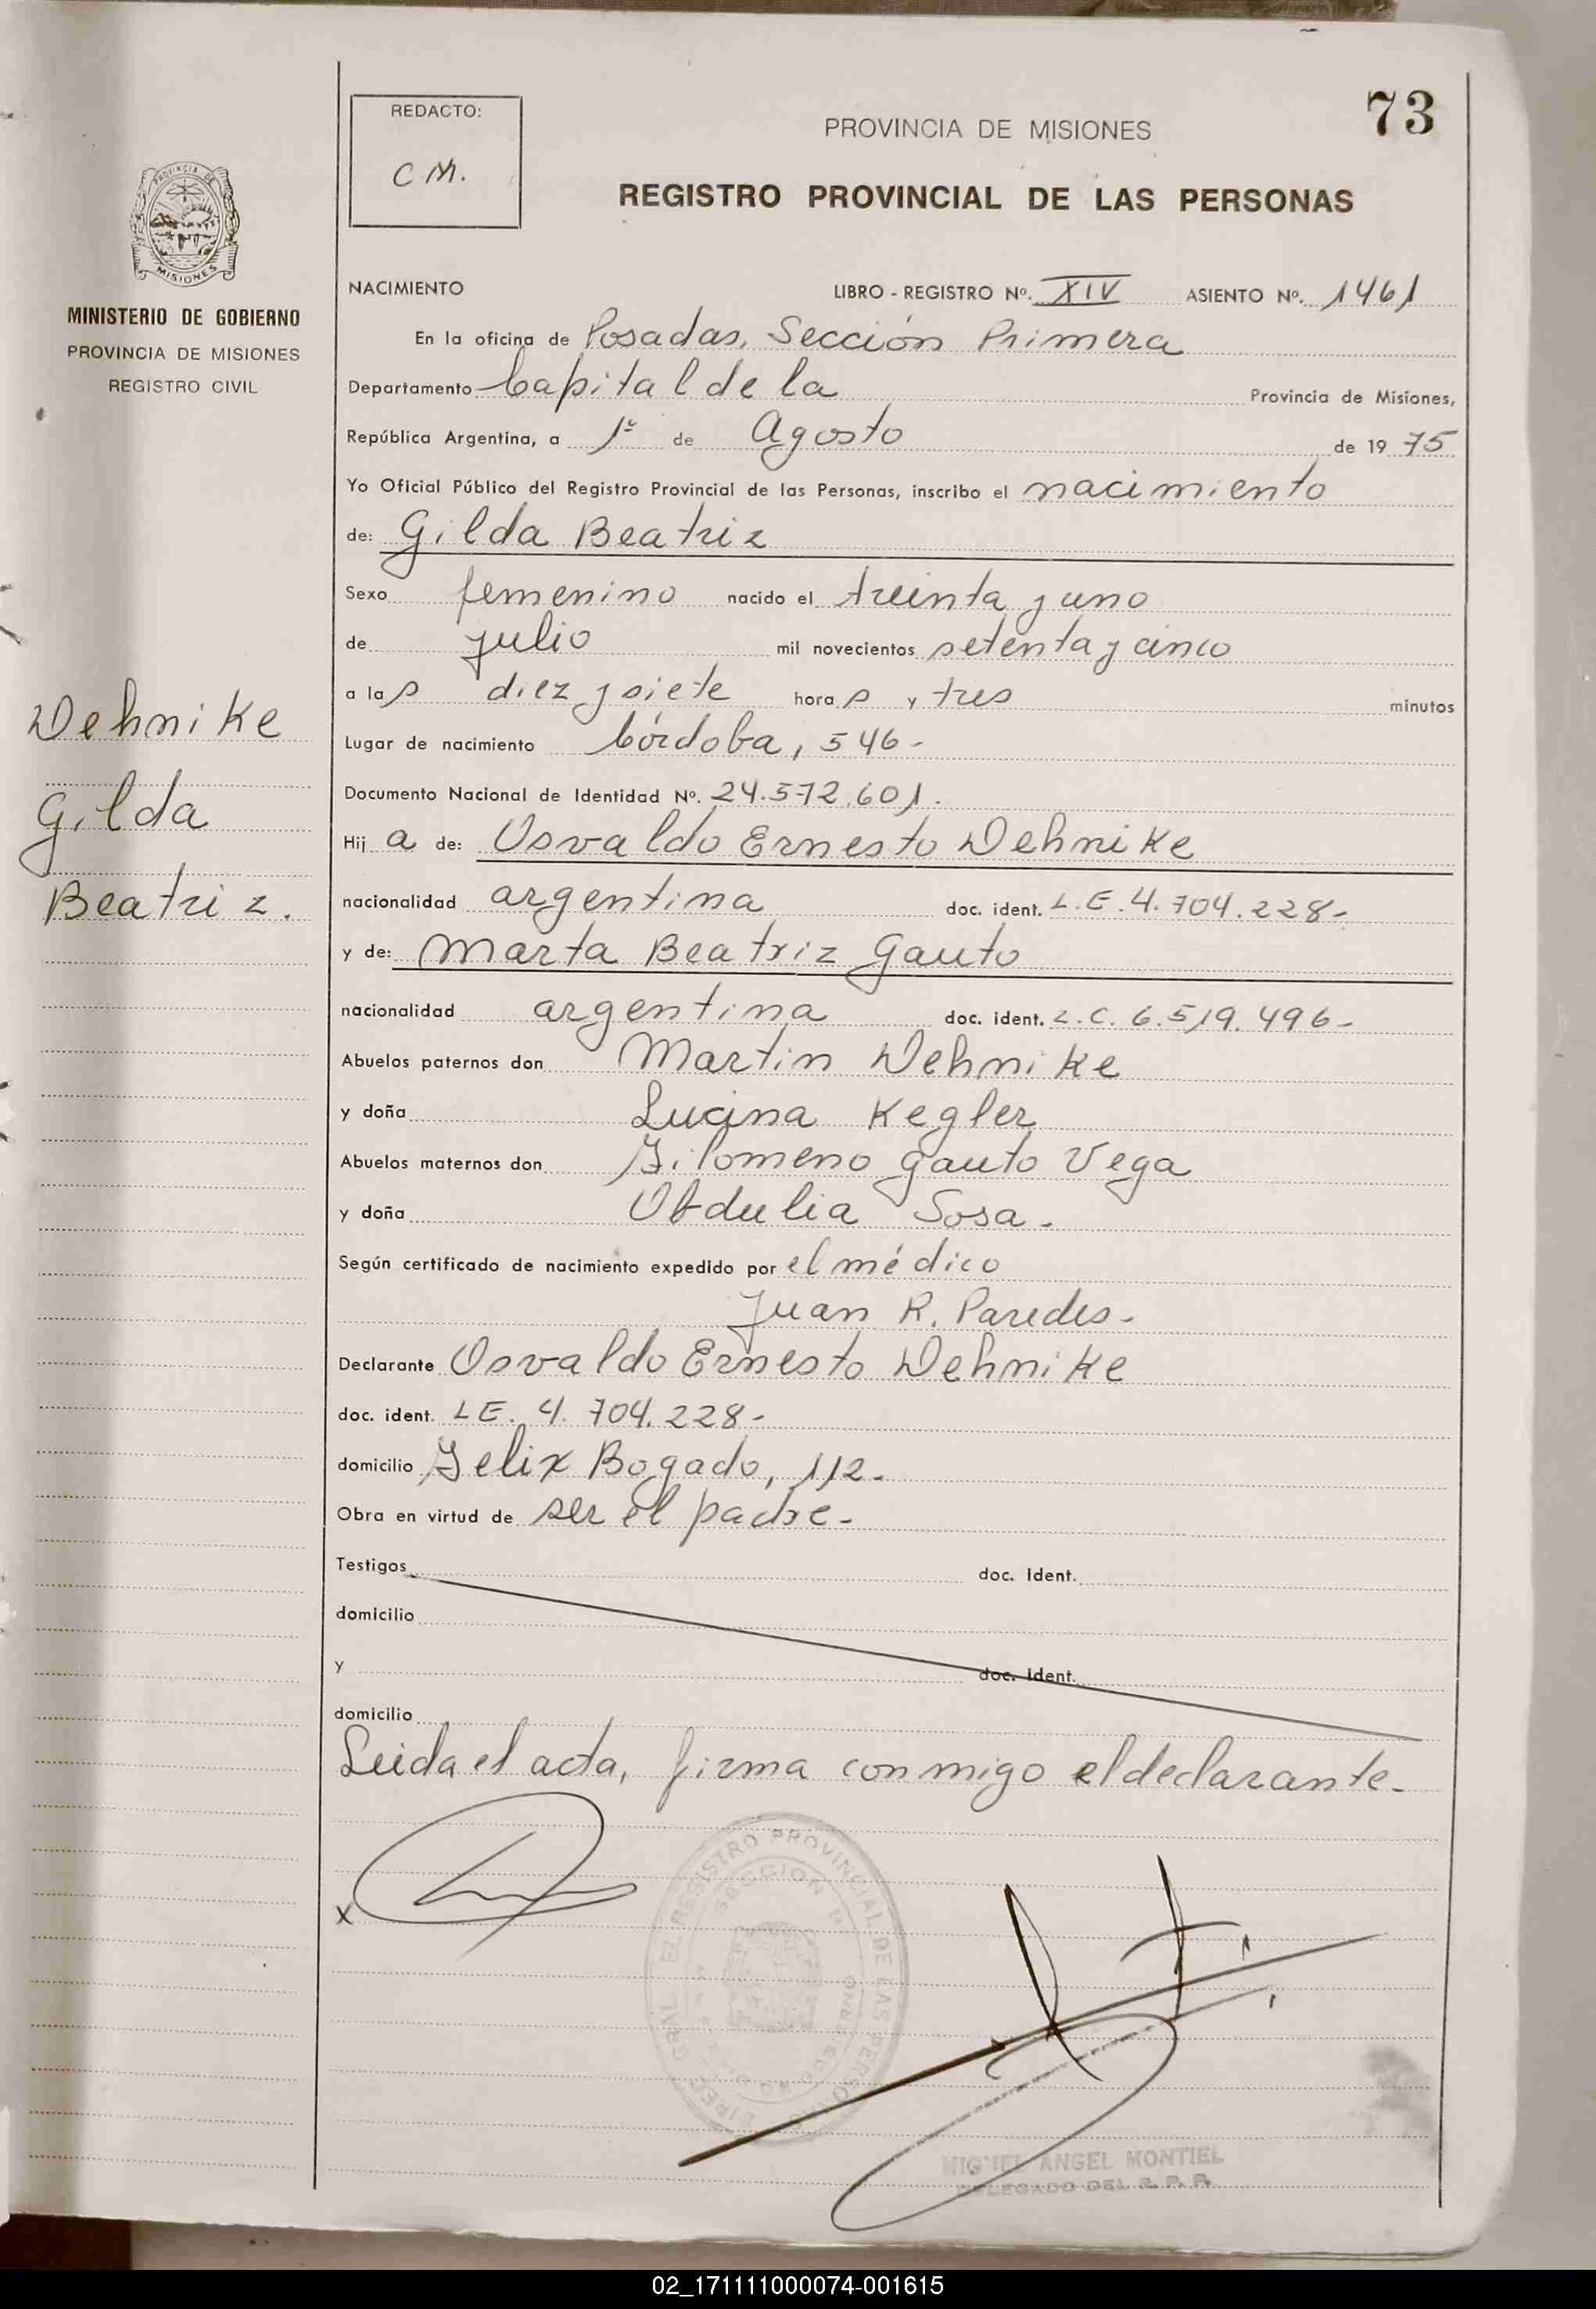 73
REDACTO:
C M.
PROVINCIA DE MISIONES
REGISTRO PROVINCIAL DE LAS PERSONAS
PROVINCIA DE
MISIONES
MINISTERIO DE GOBIERNO
PROVINCIA DE MISIONES
REGISTRO CIVIL
Dehnike
Gilda
Beatriz.
NACIMIENTO LIBRO - REGISTRO Nº. XIV ASIENTO Nº. 1461
En la oficina de Posadas, Sección Primera
Departamento Capital de la Provincia de Misiones,
República Argentina, a 1º de Agosto de 19 75
Yo Oficial Público del Registro Provincial de las Personas, inscribo el nacimiento
de: Gilda Beatriz
Sexo femenino nacido el treinta y uno
de julio mil novecientos setenta y cinco
a las diez y siete horas y tres minutos
Lugar de nacimiento Córdoba, 546-
Documento Nacional de Identidad Nº. 24.572.601.
Hij a de: Osvaldo Ernesto Dehnike
nacionalidad argentina doc. ident. L.E.4.704.228-
y de: Marta Beatriz Gauto
nacionalidad argentina doc. ident. L.C. 6.519.496-
Abuelos paternos don Martin Dehnike
y doña Lucina Kegler
Abuelos maternos don Filomeno Gauto Vega
y doña Obdulia Sosa-
Según certificado de nacimiento expedido por el médico
Juan R. Paredes-
Declarante Osvaldo Ernesto Dehnike
doc. ident. LE. 4. 704. 228-
domicilio Felix Bogado, 112-
Obra en virtud de ser el padre-
Testigos doc. Ident.
domicilio
y doc. Ident.
domicilio
Leida el acta, firma conmigo el declarante-
x
REGISTRO PROVINCIAL DE LAS PERSONAS
SECCION 1ª
MIGUEL ANGEL MONTIEL
DELEGADO DEL R. P. P.
02_171111000074-001615